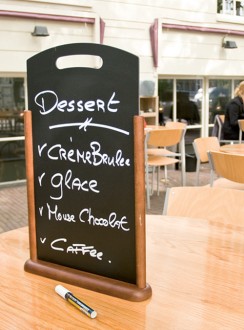 Dessert
✓ CrèmeBrulee
✓ glace
✓ Mouse Chocolat
✓ Caffee.